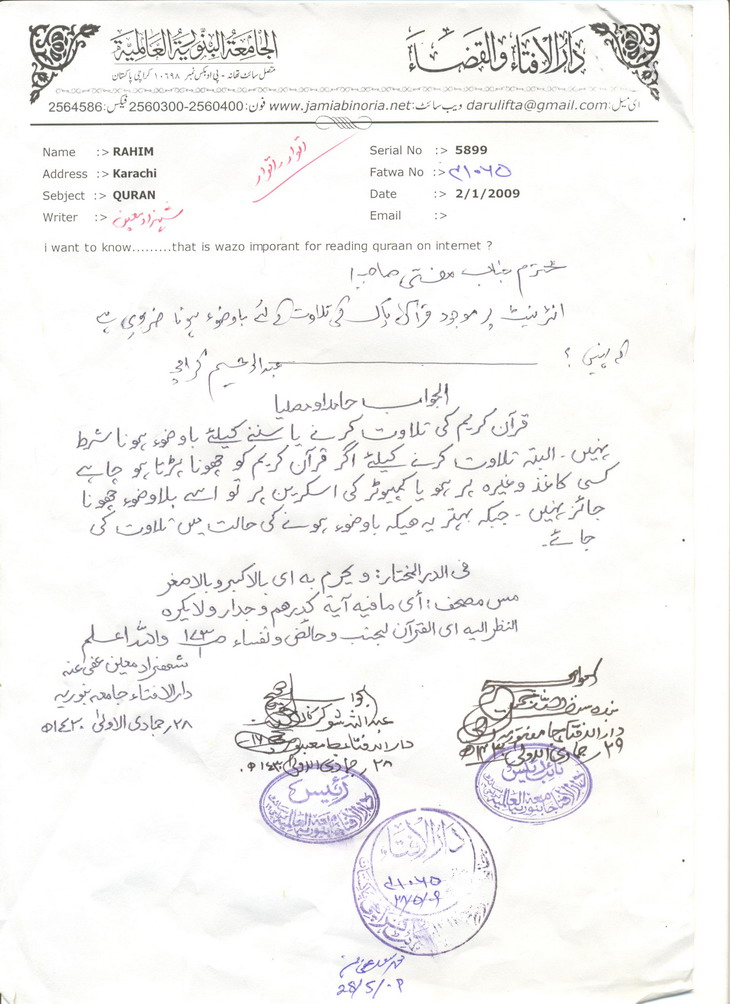 دَارُالاِفتَاء وَالقَضَاءَ
الجَامِعَةُ البِنُّورِيَّة العَالَمِيَّة
متصل سائٹ تھانہ - پی او بکس نمبر ۱۰۶۹۸ کراچی پاکستان
ای میل: darulifta@gmail.com ویب سائٹ: www.jamiabinoria.net فون: 2560300-2560400 فیکس: 2564586
Name :> RAHIM
Serial No :> 5899
Address :> Karachi
Fatwa No :> ۴۱۰۶۵
Sebject :> QURAN
Date :> 2/1/2009
Writer :> شہزاد معین
Email :>
i want to know.........that is wazo imporant for reading quraan on internet ?
محترم جناب مفتی صاحب!
انٹرنیٹ پر موجود قرآن پاک کی تلاوت کے لئے باوضوء ہونا ضروری ہے
کہ نہیں؟
عبدالرحیم کراچی
الجواب حامداً ومصلیا
قرآن کریم کی تلاوت کرنے یا سننے کیلئے باوضوء ہونا شرط
نہیں۔ البتہ تلاوت کرنے کیلئے اگر قرآن کریم کو چھونا پڑتا ہو چاہے
کسی کاغذ وغیرہ پر ہو یا کمپیوٹر کی اسکرین پر تو اسے بلاوضوء چھونا
جائز نہیں۔ جبکہ بہتر یہ ھیکہ باوضوء ہونے کی حالت میں تلاوت کی
جائے۔
فی الدر المختار: و یحرم به ای بالاکبر وبالاصغر
مس مصحف: أی مافیه آیة کدرهم وجدار ولایکره
النظر الیه ای القرآن لجنب وحائض ونفساء ص ۱۷۳ واللہ اعلم
شھزاد معین عفی عنہ
دارالافتاء جامعہ بنوریہ
۲۸ جمادی الاولی ۱۴۳۰ھ
عبداللہ شوکت
دارالافتاء جامعہ بنوریہ
۲۸ جمادی الاولی ۱۴۳۰ھ
دارالافتاء جامعہ بنوریہ
۲۹ جمادی الاولی ۱۴۳۰ھ
رئیس
نائب رئیس
دار الافتاء
۴۱۰۶۵
28/5/09